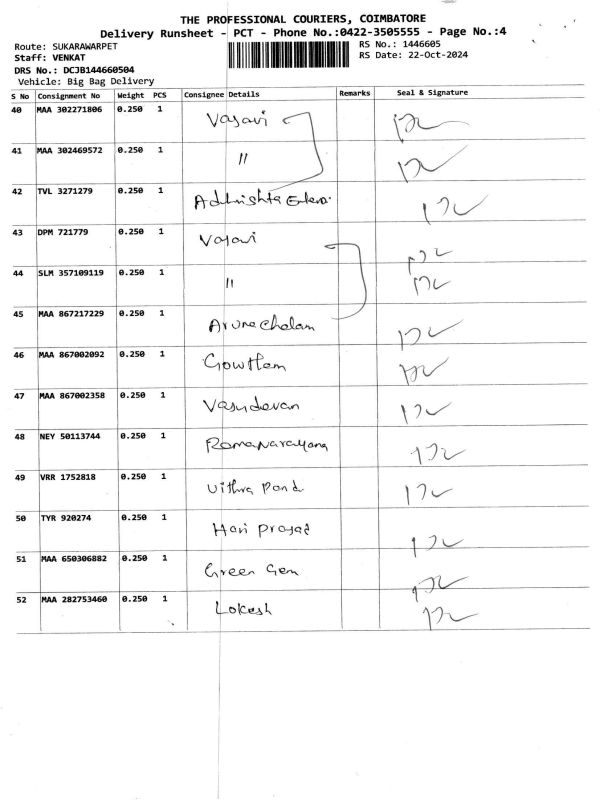 THE PROFESSIONAL COURIERS, COIMBATORE
Delivery Runsheet - PCT - Phone No.:0422-3505555 - Page No.:4
Route: SUKARAWARPET
Staff: VENKAT
DRS No.: DCJB144660504
Vehicle: Big Bag Delivery
RS No.: 1446605
RS Date: 22-Oct-2024
S No Consignment No Weight PCS Consignee Details Remarks Seal & Signature
40 MAA 302271806 0.250 1 Vasavi
41 MAA 302469572 0.250 1 "
42 TVL 3271279 0.250 1
43 DPM 721779 0.250 1 Vasavi
44 SLM 357109119 0.250 1 "
45 MAA 867217229 0.250 1 Arunachalam
46 MAA 867002092 0.250 1 Gowtham
47 MAA 867002358 0.250 1 Vasudevan
48 NEY 50113744 0.250 1 Ramanarayana
49 VRR 1752818 0.250 1
50 TYR 920274 0.250 1 Hari Prasad
51 MAA 650306882 0.250 1 Green Gem
52 MAA 282753460 0.250 1 Lokesh